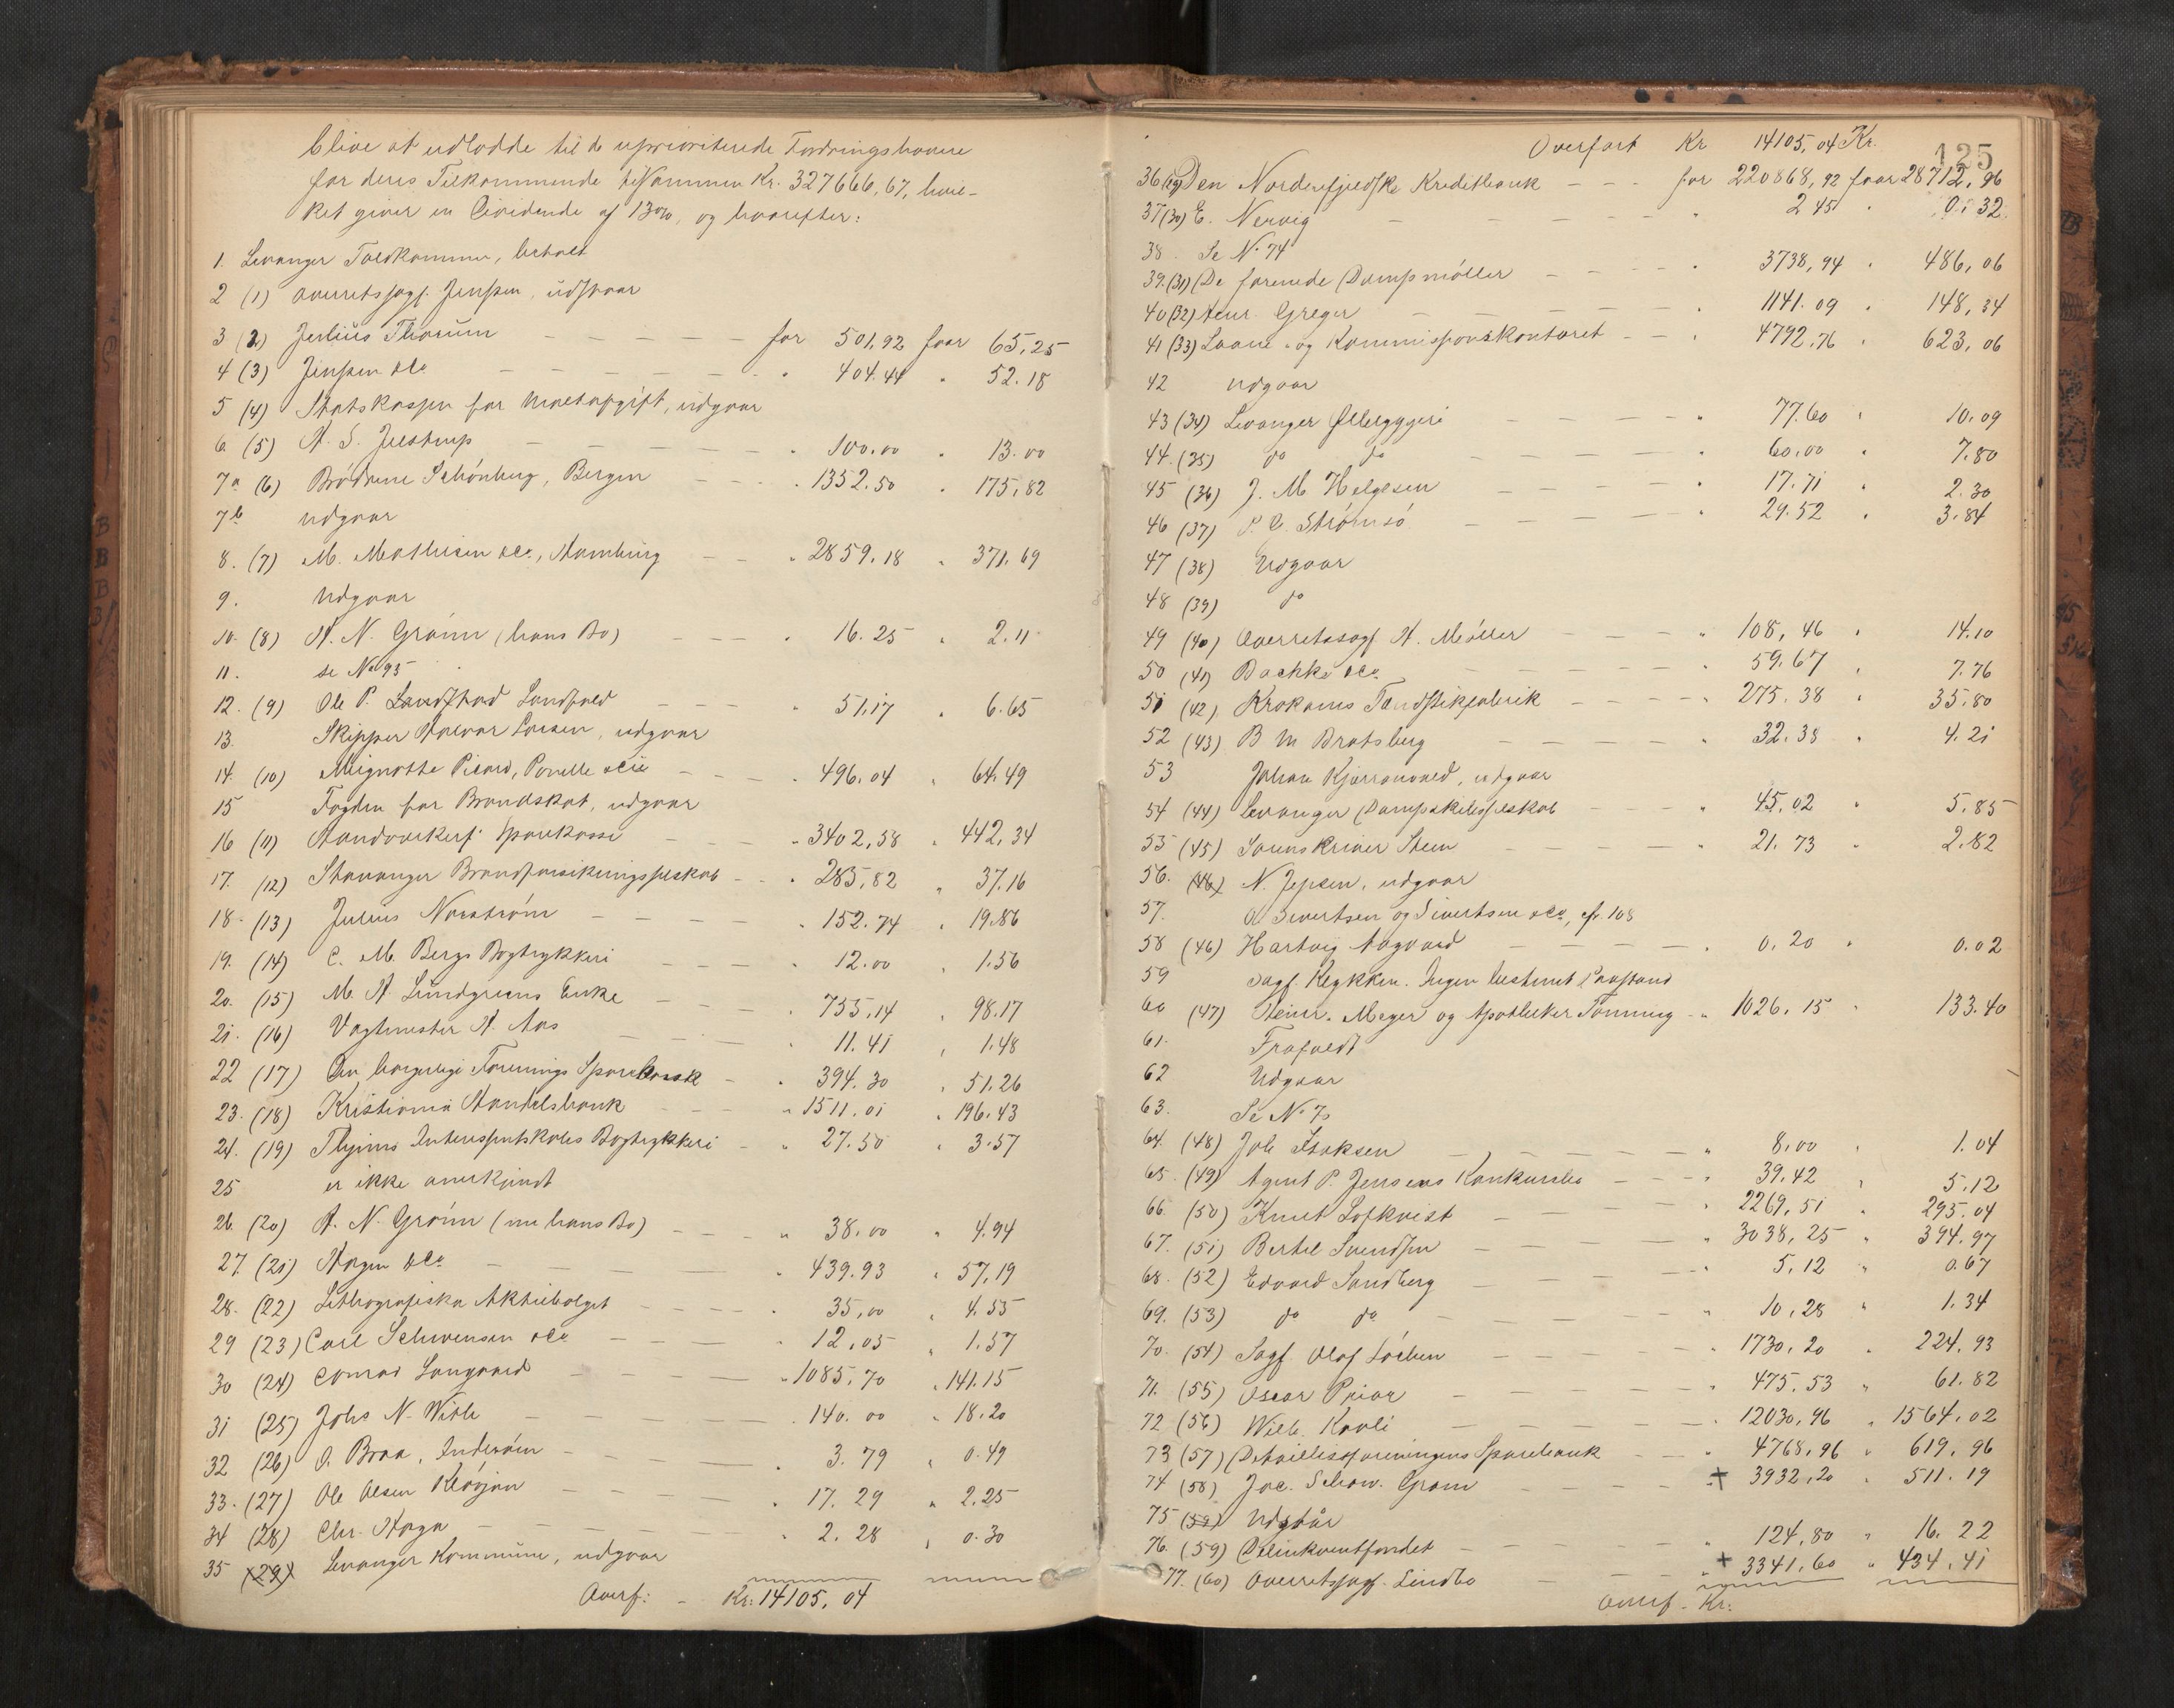 blive at udlodde til de uprioriterede Fordringshavere
for deres Tilkommende tilsammen Kr. 327666,67, hvil-
ket giver en Dividende af 13%, og hvorefter:
1. Levanger Toldkammer, betalt
2 (1) Overretssagf. Jenssen, udgaar
3 (2) Julius Thorum - - - - - for 501,92 faar 65,25
4 (3) Jenssen & Co - - - - - " 404.44 " 52.18
5 (4) Statskassen for Maltafgift, udgaar
6 (5) N. S. Jelstrup - - - - " 100.00 " 13.00
7a (6) Brødrene Schönberg, Bergen - - - " 1352.50 " 175,82
7b udgaar
8. (7) M. Mathisen & Co, Hamburg - - " 2859,18 " 371,69
9. Udgaar
10. (8) A. N. Grønn (hans Bo) - - - " 16.25 " 2.11
11. se No 95
12. (9) Ole P. Landfald - - " 51,17 " 6.65
13. Skipper Halvor Larsen, udgaar
14. (10) Mignotte Picard, Ponelle & Cie - - " 496.04 " 64.49
15 Fogden for Brandskat, udgaar
16 (11) Haandværkerf. Sparekasse - - - " 3402,58 " 442,34
17. (12) Stavanger Brandforsikringsselskab - - " 285,82 " 37.16
18. (13) Julius Norström - - - - " 152.74 " 19.86
19. (14) C. M. Bergs Bogtrykkeri - - - " 12.00 " 1.56
20. (15) M. A. Lundgreens Enke - - - " 755,14 " 98.17
21. (16) Vagtmester A. Aas - - - " 11.41 " 1.48
22 (17) Den borgerlige Forenings Sparebank - " 394.30 " 51.26
23. (18) Kristiania Handelsbank - - - " 1511.01 " 196.43
24. (19) Thjems Interessentskabs Bogtrykkeri - " 27.50 " 3.57
25 er ikke anerkjendt
26. (20) A. N. Grønn (nu hans Bo) - - - " 38.00 " 4.94
27. (21) Hagen & Co - - - - " 439.93 " 57,19
28. (22) Lithografiska Aktiebolaget - - - - " 35,00 " 4.55
29 (23) Carl Schwensen & Co - - - " 12,05 " 1.57
30 (24) Conrad Langaard - - - - " 1085,70 " 141.15
31 (25) Johs N. With - - - - " 140.00 " 18.20
32 (26) O. Braa, Inderøen - - - - " 3.79 " 0.49
33. (27) Ole Olsen - - - - " 17.29 " 2.25
34 (28) Chr. Haga - - - - " 2.28 " 0.30
35 (29) Levanger Kommune, udgaar
Overf: - Kr: 14105,04
125
Overført Kr 14105,04 Kr.
36 (29) Den Nordenfjeldske Kreditbank - - - for 220868,92 faar 28712,96
37 (30) E. Nervig - - - - " 2.45 " 0.32
38. Se No 74
39. (31) De forenede Dampmøller - - - " 3738,94 " 486,06
40 (32) Heinr. Greger - - - - " 1141.09 " 148,34
41 (33) Laane- og Kommissionskontoret - - " 4792,76 " 623,06
42 Udgaar
43 (34) Levanger Ølbryggeri - - - - " 77.60 " 10.09
44. (35) do do - - - - " 60,00 " 7.80
45 (36) J. M Helgesen - - - - " 17.71 " 2.30
46 (37) Strømsö - - - - " 29.52 " 3.84
47 (38) Udgaar
48 (39) do
49 (40) Overretssagf. A. Møller - - - " 108,46 " 14.10
50 (41) Bachke & Co - - - - " 59.67 " 7.76
51 (42) Krokans Tændstikfabrik - - - - " 275.38 " 35.80
52 (43) B M Bratsberg - - - - " 32.38 " 4.21
53 Johan udgaar
54 (44) Levanger Dampskibsselskab - - - " 45.02 " 5.85
55 (45) Sorenskriver Steen - - - - " 21.73 " 2.82
56. (46) N. Jepsen, udgaar
57. Sivertsen og Sivertsen & Co, cfr 108
58 (46) Hartvig Aagaard - - - - " 0.20 " 0.02
59 Sagf. Ingen bestemt Paastand
60 (47) Heinr. Meyer og Apotheker Tønning - " 1026.15 " 133.40
61. Frafaldt
62 Udgaar
63. Se No 7b
64. (48) Job Isaksen - - - - " 8.00 " 1.04
65. (49) Agent P. Jenssens Konkursbo - - - " 39.42 " 5.12
66. (50) Knut Löfkvist - - - - " 2269,51 " 295.04
67. (51) Bertel Svendsen - - - - " 3038,25 " 394.97
68. (52) Edvard Sandberg - - - - " 5.12 " 0.67
69. (53) do do - - - - " 10,28 " 1.34
70. (54) Sagf. Olaf Löchen - - - - " 1730,20 " 224,93
71. (55) Oscar Prior - - - - " 475.53 " 61.82
72 (56) Wilh. Kavli - - - - " 12030,96 " 1564.02
73 (57) Detaillistforeningens Sparebank - - " 4768,96 " 619,96
74 (58) Jac. Schow. Gram - - - - + 3932,20 " 511.19
75 (59) Udgaar
76. (59) Delinkventfondet - - - - " 124,80 " 16.22
77. (60) Overretssagf. Lindbo - - - + 3341,60 " 434,41
Overf - Kr: